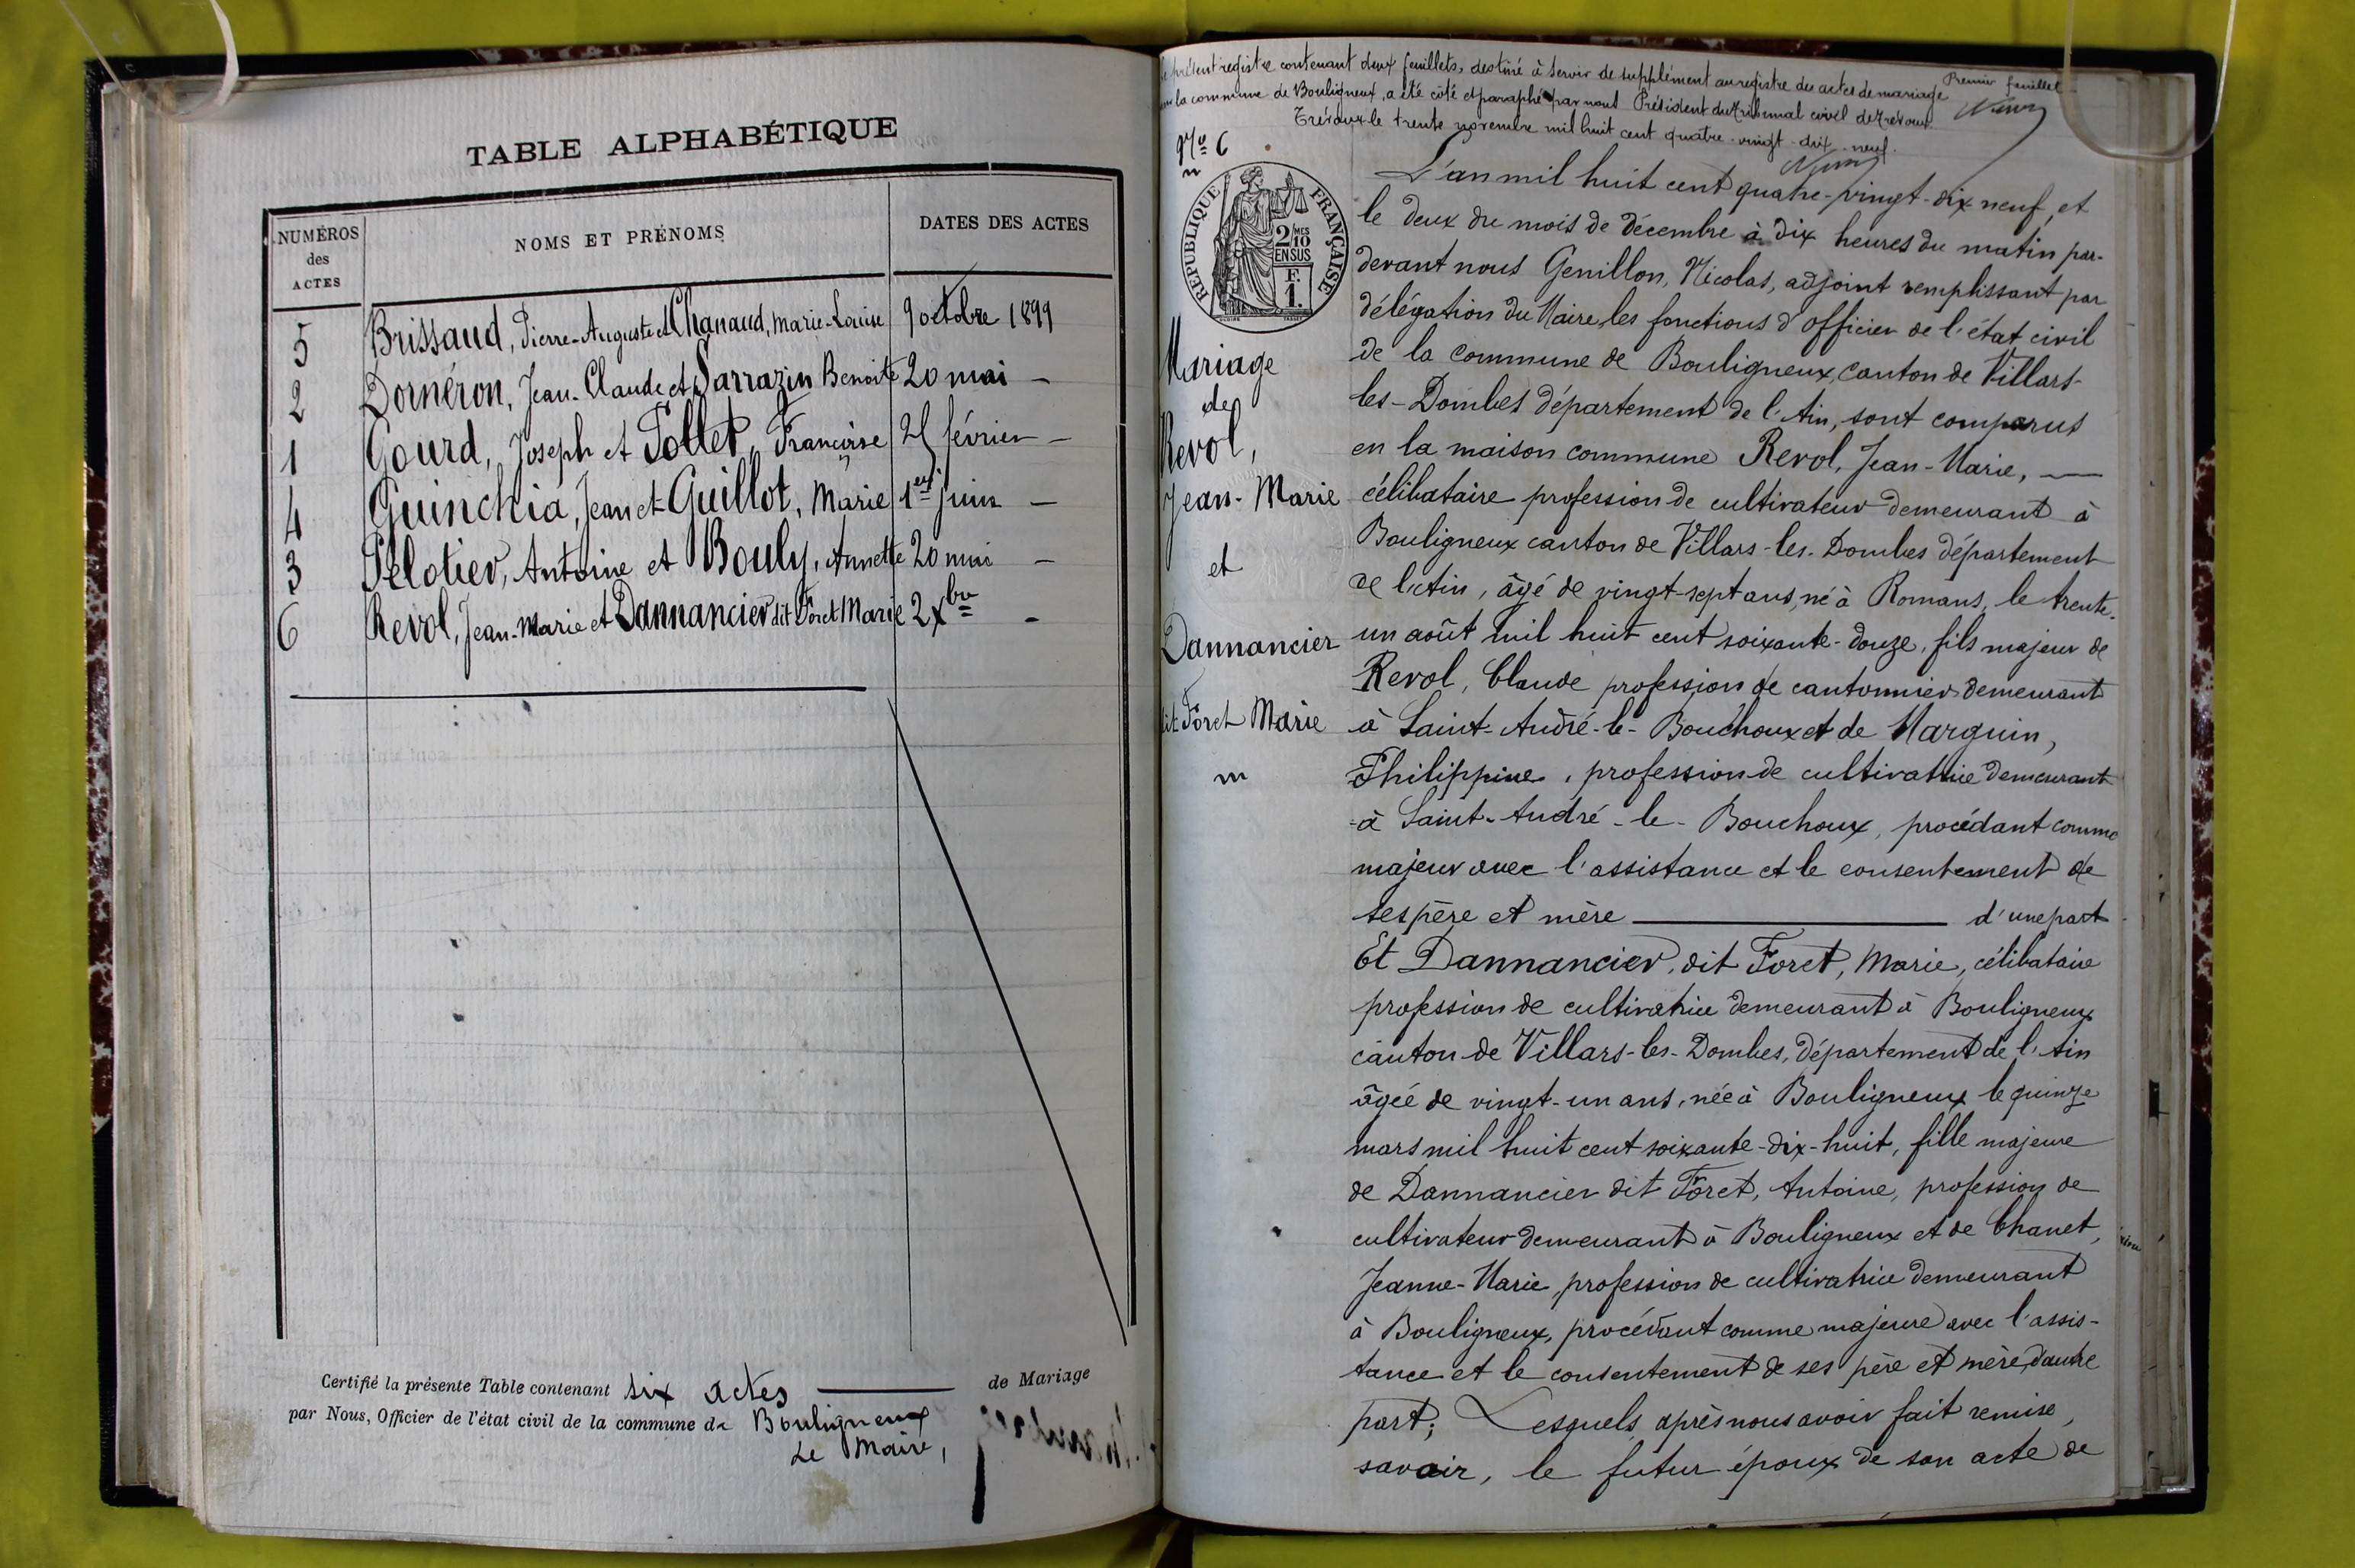 TABLE ALPHABÉTIQUE
NUMÉROS des ACTES
NOMS ET PRÉNOMS
DATES DES ACTES
5 Brissaud, Pierre-Auguste et Chanaud, Marie-Louise 9 octobre 1899
2 Dornéron, Jean-Claude et Sarrazin Benoite 20 mai —
1 Gourd, Joseph et Pollet, Françoise 25 février —
4 Guinchia, Jean et Guillot, Marie 1er juin —
3 Pelotier, Antoine et Bouly, Annette 20 mai —
6 Revol, Jean-Marie et Dannancier dit Foret Marie 2 Xbre -
Certifié la présente Table contenant six actes de Mariage
par Nous, Officier de l'état civil de la commune de Bouligneux
Le Maire,
Le présent registre contenant deux feuillets, destiné à servir de supplément au registre des actes de mariage
pour la commune de Bouligneux, a été côté et paraphé par nous Président du Tribunal civil de Trévoux
Trévoux le trente novembre mil huit cent quatre-vingt-dix-neuf.
Premier feuillet
No 6
RÉPUBLIQUE FRANÇAISE
2/10 MES
EN SUS
F.
1.
Mariage
de
Revol,
Jean-Marie
et
Dannancier
dit Foret Marie
L'an mil huit cent quatre-vingt-dix neuf, et
le deux du mois de décembre à dix heures du matin par-
devant nous Genillon, Nicolas, adjoint remplissant par
délégation du Maire, les fonctions d'officier de l'état civil
de la commune de Bouligneux, canton de Villars-
les-Dombes département de l'Ain, sont comparus
en la maison commune Revol, Jean-Marie, —
célibataire profession de cultivateur demeurant à
Bouligneux canton de Villars-les-Dombes département
de l'Ain, âgé de vingt-sept ans, né à Romans, le trente-
un août mil huit cent soixante-douze, fils majeur de
Revol, Claude profession de cantonnier demeurant
à Saint-André-le-Bouchoux et de Marguin,
Philippine, profession de cultivatrice demeurant
à Saint-André-le-Bouchoux, procédant comme
majeur avec l'assistance et le consentement de
ses père et mère — d'une part
Et Dannancier, dit Foret, Marie, célibataire
profession de cultivatrice demeurant à Bouligneux
canton de Villars-les-Dombes, département de l'Ain
âgée de vingt-un ans, née à Bouligneux le quinze
mars mil huit cent soixante-dix-huit, fille majeure
de Dannancier dit Foret, Antoine, profession de
cultivateur demeurant à Bouligneux et de Chanet,
Jeanne-Marie, profession de cultivatrice demeurant
à Bouligneux, procédant comme majeure avec l'assis-
tance et le consentement de ses père et mère, d'autre
part; Lesquels après nous avoir fait remise,
savoir, le futur époux de son acte de